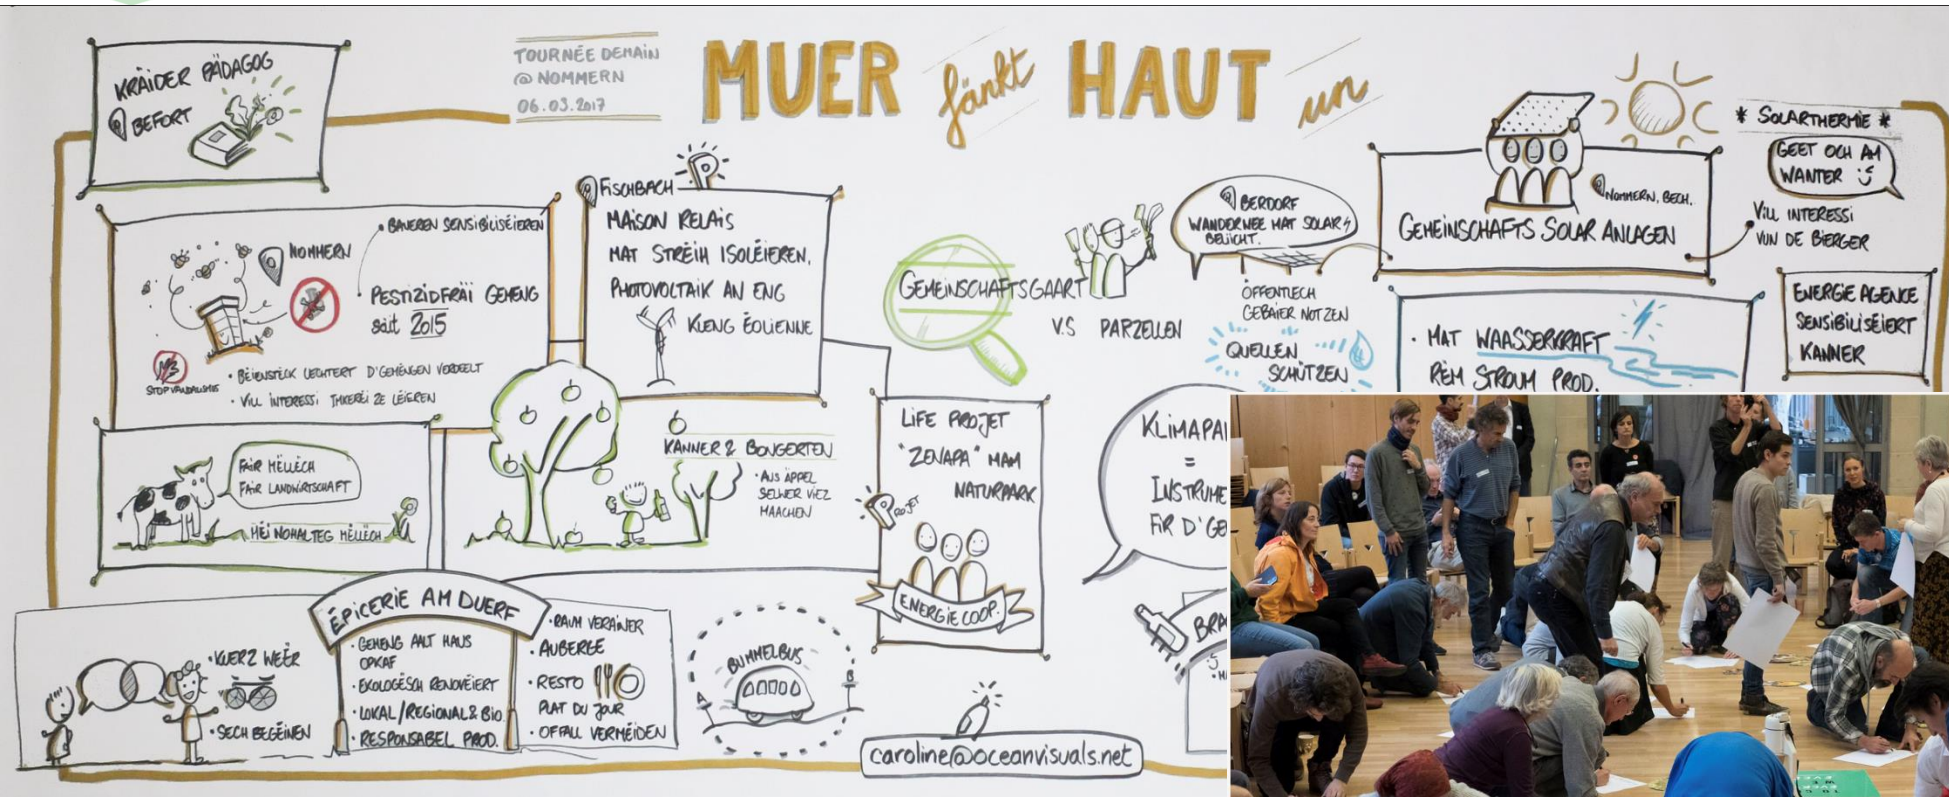 KRÄIDER PÄDAGOG
BEFORT
TOURNÉE DEMAIN
@ NOMMERN
06.03.2017
MUER fänkt HAUT un
NOMMERN
BAUEREN SENSIBILISÉIEREN
PESTIZIDFRÄI GEMENG
säit 2015
STOP VANDALISMUS
• BEIENSTËCK UECHTERT D'GEMENGEN VERDEELT
• VILL INTERESSI IMKEREI ZE LÉIEREN
FISCHBACH
MAISON RELAIS
MAT STRÉIH ISOLÉIEREN,
PHOTOVOLTAIK AN ENG
KLENG ÉOLIENNE
GEMEINSCHAFTSGAART
V.S PARZELLEN
BERDORF
WANDERWEE MAT SOLAR
BELIICHT.
ÖFFENTLECH
GEBAIER NOTZEN
QUELLEN
SCHÜTZEN
NOMMERN, BECH.
GEMEINSCHAFTS SOLAR ANLAGEN
* SOLARTHERMIE *
GEET OCH AM
WANTER
VILL INTERESSI
VUN DE BIERGER
• MAT WAASSERKRAFT
RËM STROUM PROD.
ENERGIE AGENCE
SENSIBILISÉIERT
KANNER
FAIR MËLLECH
FAIR LANDWIRTSCHAFT
MÉI NOHALTEG MËLLECH
KANNER & BONGERTEN
• AUS ÄPPEL
SELWER VIEZ
MAACHEN
LIFE PROJET
"ZENAPA" MAM
NATURPARK
PROJET
ENERGIE COOP.
KLIMAPA
=
INSTRUME
FIR D'GE
• KUERZ WEER
• SECH BEGÉINEN
ÉPICERIE AM DUERF
• GEMENG AALT HAUS
OPKAF
• EKOLOGESCH RENOVÉIERT
• LOKAL/REGIONAL & BIO
• RESPONSABEL PROD.
• RAUM VERAINER
• AUBERGE
• RESTO
PLAT DU JOUR
• OFFALL VERMEIDEN
BUMMELBUS
A
B
BRA
caroline@oceanvisuals.net